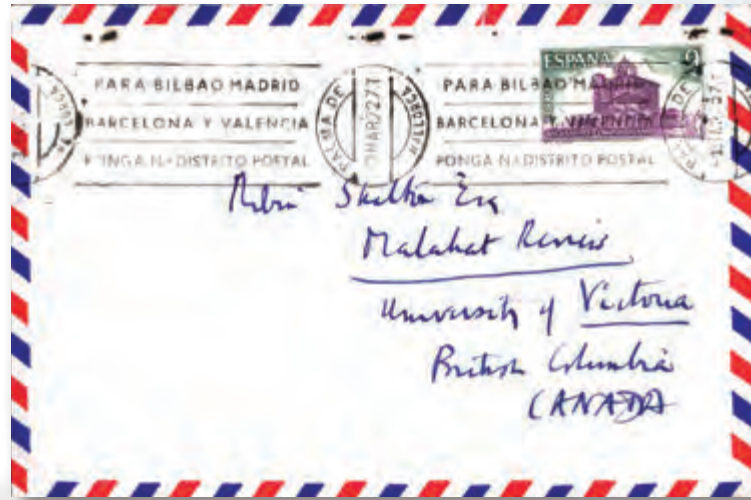 ESPAÑA 9
PARA BILBAO MADRID
BARCELONA Y VALENCIA
PONGA Nº DISTRITO POSTAL
PALMA DE MALLORCA
PARA BILBAO MADRID
BARCELONA Y VALENCIA
PONGA Nº DISTRITO POSTAL
PALMA DE
Robin Skelton Esq
Malahat Review
University of Victoria
British Columbia
CANADA